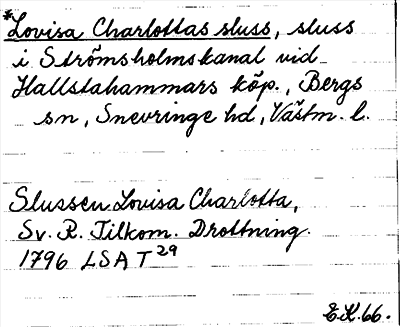 *Lovisa Charlottas sluss, sluss
i Strömsholms kanal vid
Hallstahammars köp., Bergs
sn, Snevringe hd, Västm. l.
Slussen Lovisa Charlotta,
Sv. R. Tilkom. Drottning.
1796 LSA T 29
E.K. 66.